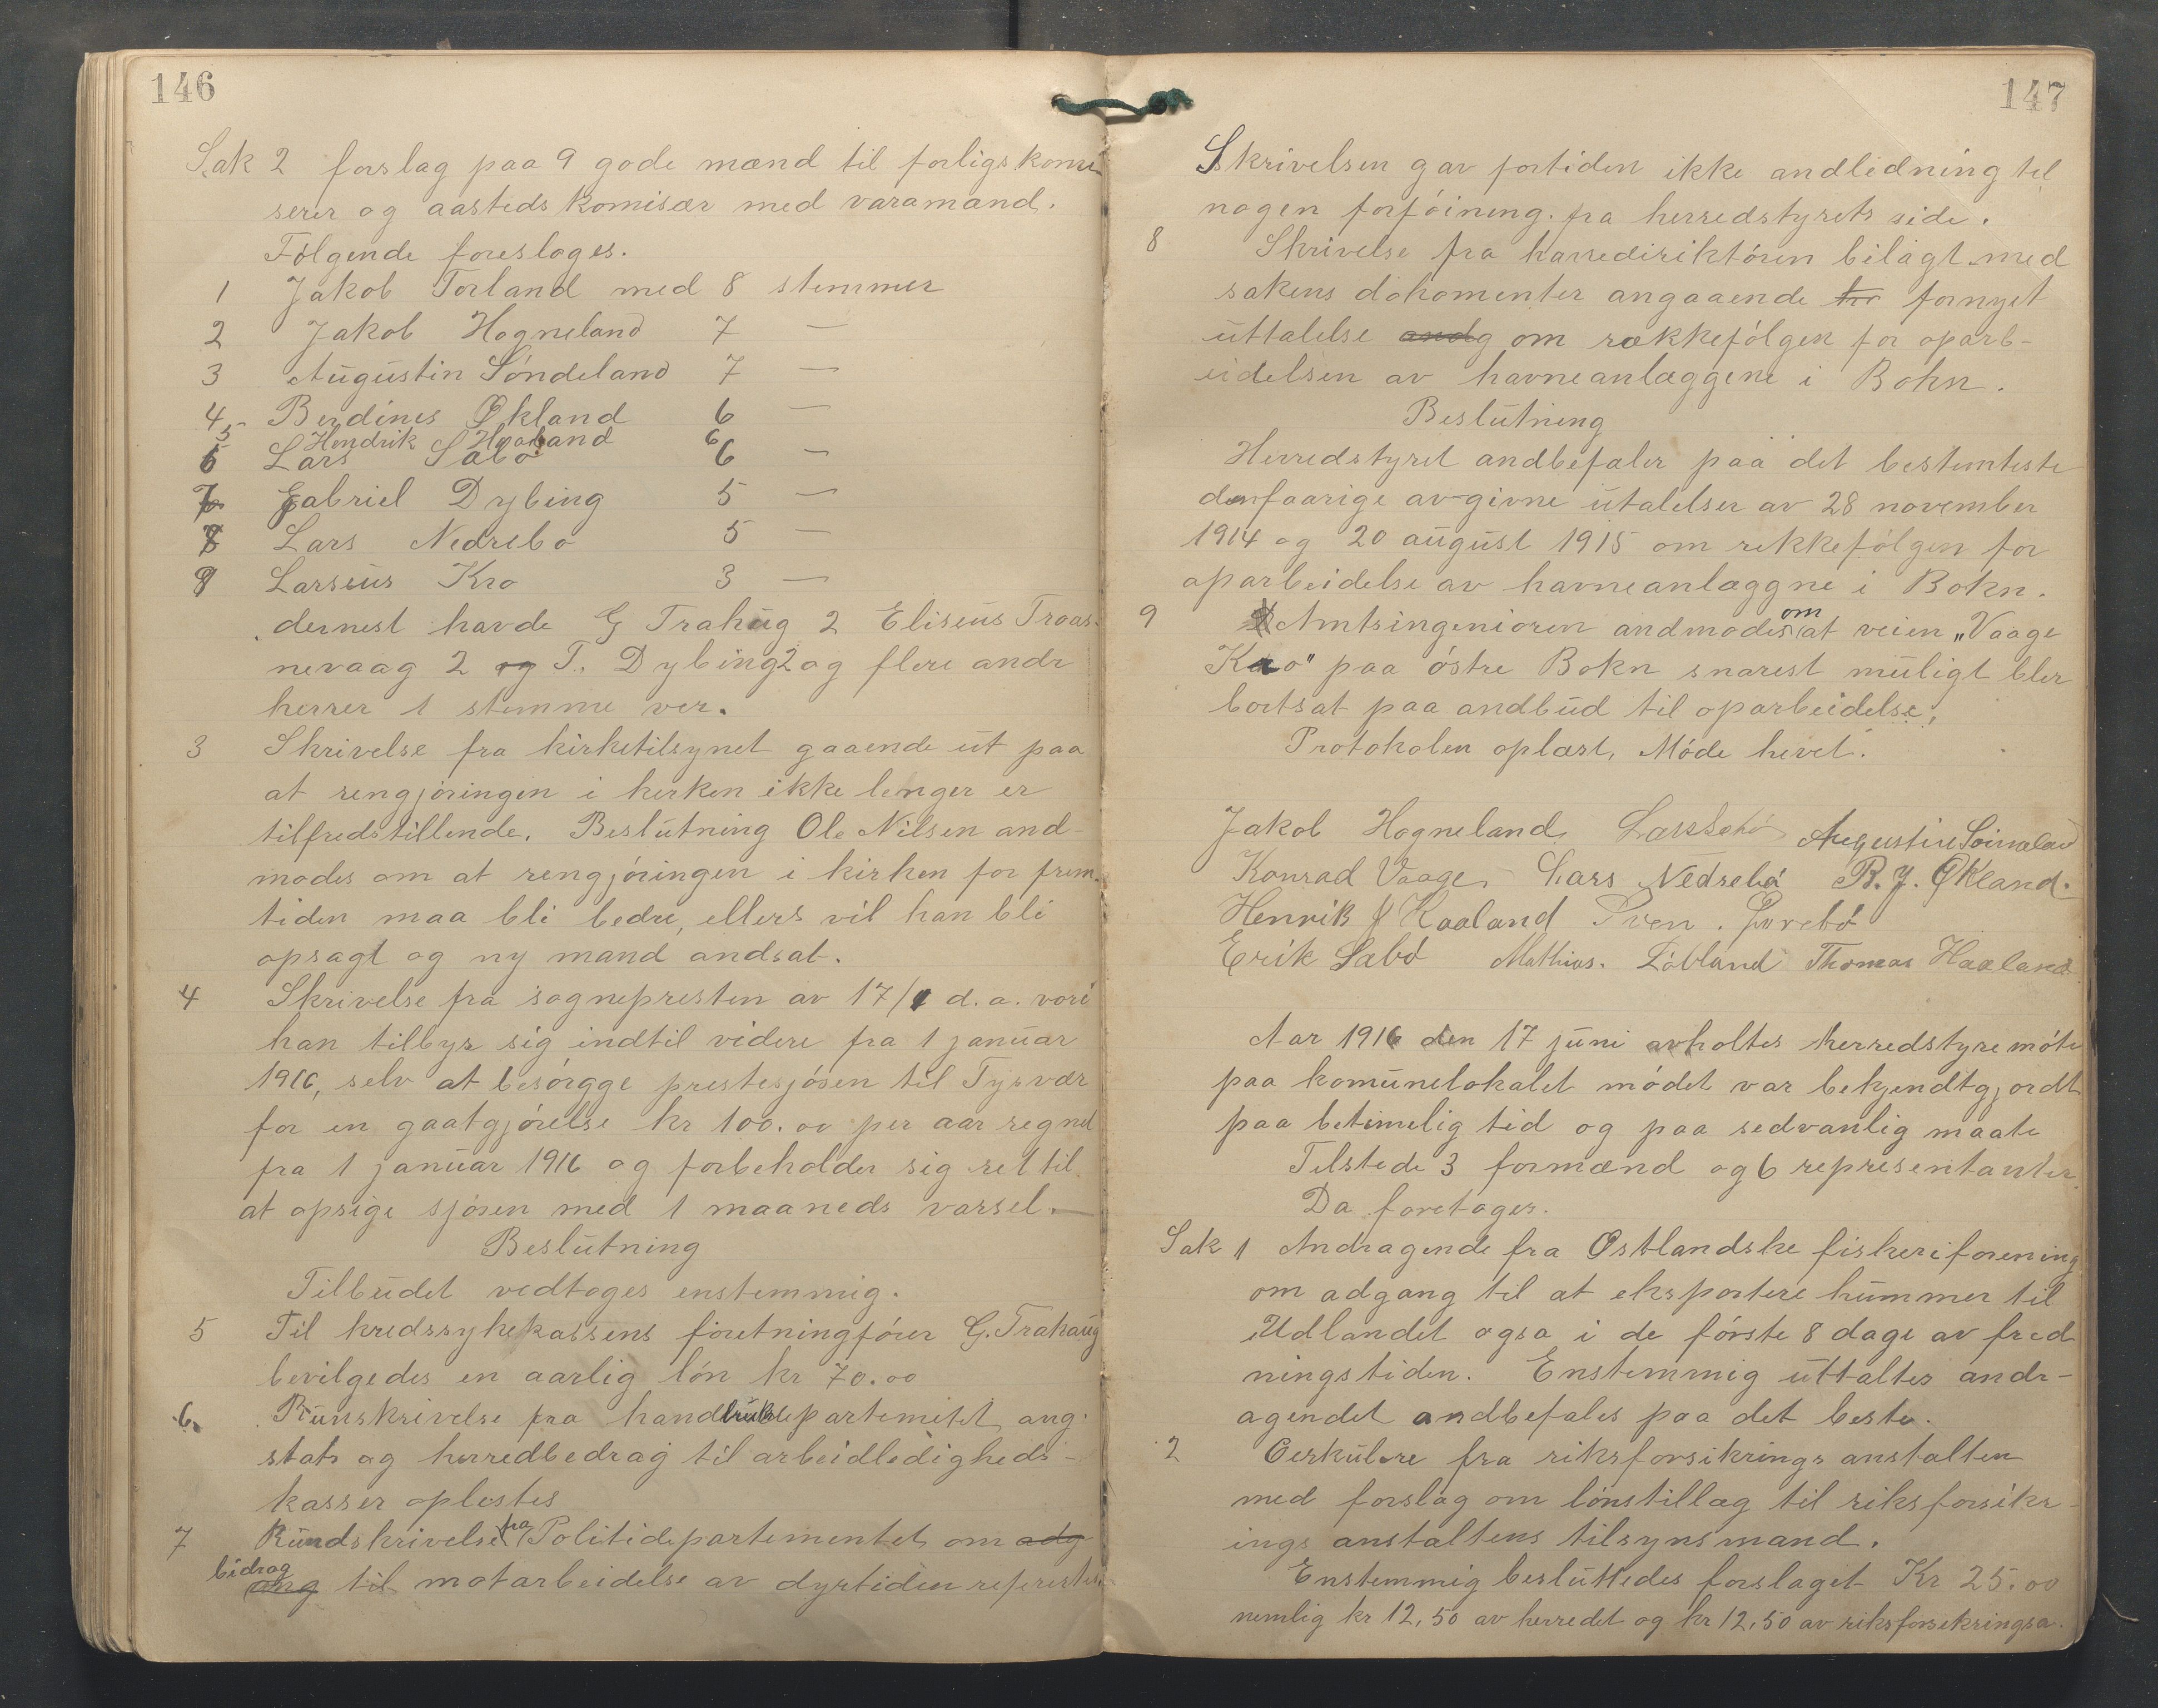 146
Sak 2 forslag paa 9 gode mænd til forligskomi
serer og aasteds komisær med varamand.
Følgende foresloges.
1 Jakob Torland med 8 stemmer
2 Jakob Hogneland 7 —
3 Augustin Söndeland 7 —
4 Berdines Økland 6 —
5 Hendrik Haaland 6
6 Lars Sæbø 6 —
7 Gabriel Dybing 5 —
8 Lars Nedrebo 5 —
9 Larseus Kro 3 —
dernest havde G Trahaug 2 Eliseus Troas-
nevaag 2 og T. Dybing 2 og flere andr
herrer 1 stemme ver.
3 Skrivelse fra kirketilsynet gaaende ut paa
at rengjøringen i kirken ikke lenger er
tilfredstillende. Beslutning Ole Nilsen and-
modes om at rengjøringen i kirken for frem-
tiden maa bli bedre, ellers vil han bli
opsagt og ny mand andsat.
4 Skrivelse fra sognepresten av 17/1 d.a. vori
han tilbyr sig indtil videre fra 1 januar
1916, selv at besørgge prestesjøsen til Tysvær
for en gaatgjørelse kr 100.00 per aar regnet
fra 1 januar 1916 og forbeholder sig ret til
at opsige sjøsen med 1 maaneds varsel. —
Beslutning
Tilbudet vedtoges enstemmig.
5 Til kredssykekassens foretningfører G. Trahaug
bevilgedes en aarlig løn kr 70.00
6. Runskrivelse fra handelsdepartemitet ang.
stats og herredbedrag til arbeidledigheds-
kasser oplestes
7 Rundskrivelse fra Politidepartementet om adg
bidrag
ang til motarbeidelse av dyrtiden referertes.
147
Skrivelsen gav fortiden ikke andledning tel
nogen forføining. fra herredstyrets side.
8 Skrivelse fra havnediriktøren bilagt med
sakens dokomenter angaaende for fornyet
uttalelse andg om rækkefølgen for oparb-
eidelsen av havneanlæggene i Bokn.
Beslutning
Herredstyret andbefaler paa det bestemteste
de forrige avgivne utalelser av 28 november
1914 og 20 august 1915 om rekkefølgen for
oparbeidelse av havneanlæggne i Bokn.
9 Amtsingeniøren andmodes om at veien „Vaage
Kro" paa østre Bokn snarest muligt bler
bortsat paa andbud til oparbeidelse.
Protokolen oplæst, Møde hevet.
Jakob Hogneland Lars Sæbø Augustin Søineland
Konrad Vaage, Lars Nedrebø B. J. Økland.
Henrik J Haaland Sven. Øvrebø
Erik Sæbø Mathias. Løvland Thomas Haaland
Aar 1916 den 17 juni avholtes herredstyre møte
paa komunelokalet mødet var bekjendtgjordt
paa betimelig tid og paa sedvanlig maate
Telstede 3 formænd og 6 representanter
Da foretoges.
Sak 1 Andragende fra Østlandske fiskeriforening
om adgang til at eksportere hummer til
Udlandet ogsa i de første 8 dage av fred
ningstiden. Enstemmig uttaltes andr-
agendet andbefales paa det beste.
2 Cerkulere fra riksforsikrings anstalten
med forslag om lønstillæg til riksforsikr-
ings anstaltens tilsynsmand.
Enstemmig besluttedes forslaget Kr 25.00
nemlig kr 12,50 av herredet og kr 12,50 av riksforsekringsa.